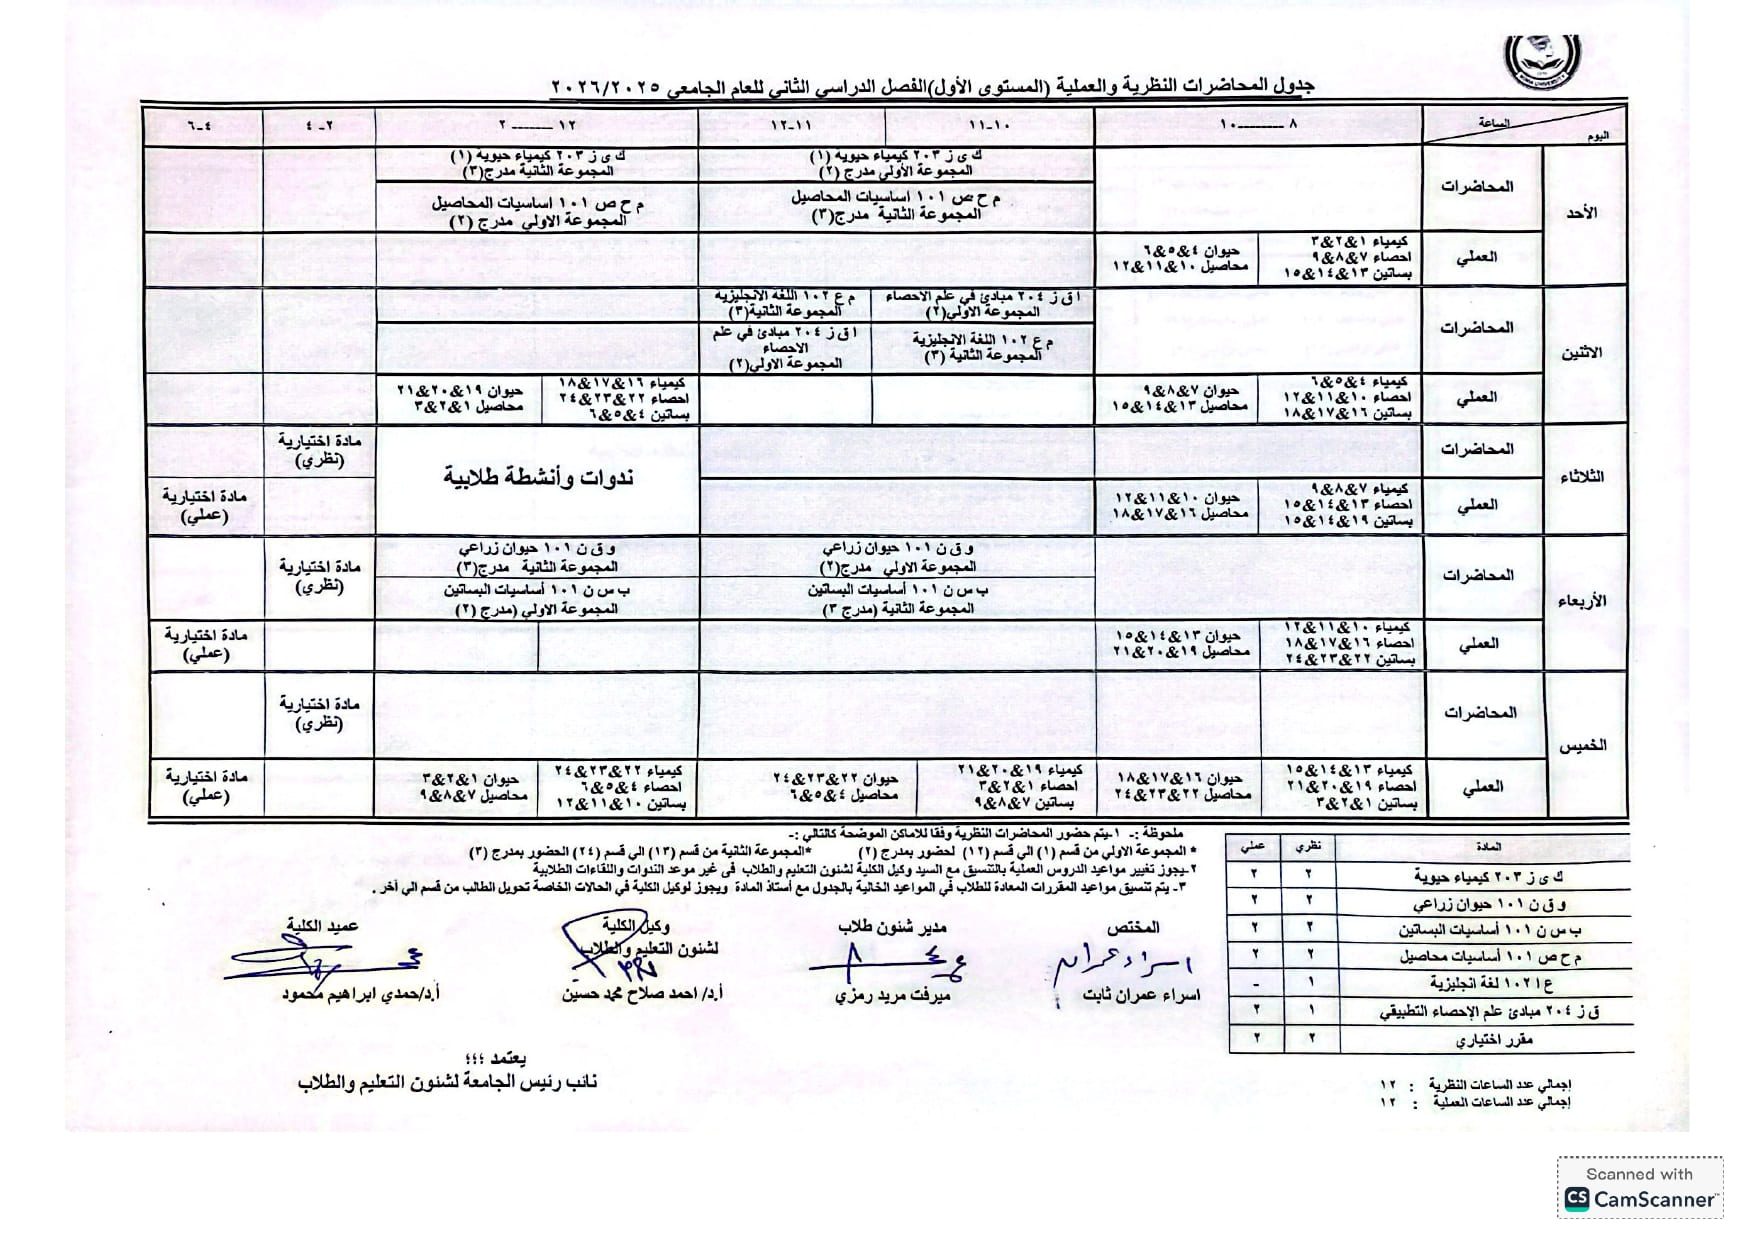 جدول المحاضرات النظرية والعملية (المستوى الأول)الفصل الدراسي الثاني للعام الجامعي ٢٠٢٦/٢٠٢٥
الساعة
اليوم
٨ ـــــــ ١٠
١٠-١١
١١-١٢
١٢ ـــــــ ٢
٢- ٤
٤-٦
الأحد
المحاضرات
ك ى ز ٢٠٣ كيمياء حيوية (١)
المجموعة الأولي مدرج (٢)
م ح ص ١٠١ اساسيات المحاصيل
المجموعة الثانية مدرج(٣)
ك ى ز ٢٠٣ كيمياء حيوية (١)
المجموعة الثانية مدرج(٣)
م ح ص ١٠١ اساسيات المحاصيل
المجموعة الاولي مدرج (٢)
العملي
كيمياء ١&٢&٣
احصاء ٧&٨&٩
بساتين ١٣&١٤&١٥
حيوان ٤&٥&٦
محاصيل ١٠&١١&١٢
الاثنين
المحاضرات
ا ق ز ٢٠٤ مبادئ في علم الاحصاء
المجموعة الاولي(٢)
م ع ١٠٢ اللغة الانجليزية
المجموعة الثانية (٣)
م ع ١٠٢ اللغة الانجليزية
المجموعة الثانية(٣)
ا ق ز ٢٠٤ مبادئ في علم
الاحصاء
المجموعة الاولي(٢)
العملي
كيمياء ٤&٥&٦
احصاء ١٠&١١&١٢
بساتين ١٦&١٧&١٨
حيوان ٧&٨&٩
محاصيل ١٣&١٤&١٥
كيمياء ١٦&١٧&١٨
احصاء ٢٢&٢٣&٢٤
بساتين ٤&٥&٦
حيوان ١٩&٢٠&٢١
محاصيل ١&٢&٣
الثلاثاء
المحاضرات
ندوات وأنشطة طلابية
مادة اختيارية
(نظري)
العملي
كيمياء ٧&٨&٩
احصاء ١٣&١٤&١٥
بساتين ١٩&١٤&١٥
حيوان ١٠&١١&١٢
محاصيل ١٦&١٧&١٨
مادة اختيارية
(عملي)
الأربعاء
المحاضرات
و ق ن ١٠١ حيوان زراعي
المجموعة الاولي مدرج(٢)
ب س ن ١٠١ أساسيات البساتين
المجموعة الثانية (مدرج ٣)
و ق ن ١٠١ حيوان زراعي
المجموعة الثانية مدرج(٣)
ب س ن ١٠١ أساسيات البساتين
المجموعة الاولي (مدرج ٢)
مادة اختيارية
(نظري)
العملي
كيمياء ١٠&١١&١٢
احصاء ١٦&١٧&١٨
بساتين ٢٢&٢٣&٢٤
حيوان ١٣&١٤&١٥
محاصيل ١٩&٢٠&٢١
مادة اختيارية
(عملي)
الخميس
المحاضرات
مادة اختيارية
(نظري)
العملي
كيمياء ١٣&١٤&١٥
احصاء ١٩&٢٠&٢١
بساتين ١&٢&٣
حيوان ١٦&١٧&١٨
محاصيل ٢٢&٢٣&٢٤
كيمياء ١٩&٢٠&٢١
احصاء ١&٢&٣
بساتين ٧&٨&٩
حيوان ٢٢&٢٣&٢٤
محاصيل ٤&٥&٦
كيمياء ٢٢&٢٣&٢٤
احصاء ٤&٥&٦
بساتين ١٠&١١&١٢
حيوان ١&٢&٣
محاصيل ٧&٨&٩
مادة اختيارية
(عملي)
ملحوظة :- ١-يتم حضور المحاضرات النظرية وفقا للاماكن الموضحة كالتالي :-
* المجموعة الاولي من قسم (١) الي قسم (١٢) لحضور بمدرج (٢) *المجموعة الثانية من قسم (١٣) الي قسم (٢٤) الحضور بمدرج (٣)
٢-يجوز تغيير مواعيد الدروس العملية بالتنسيق مع السيد وكيل الكلية لشئون التعليم والطلاب فى غير موعد الندوات واللقاءات الطلابية
٣- يتم تنسيق مواعيد المقررات المعادة للطلاب في المواعيد الخالية بالجدول مع أستاذ المادة ويجوز لوكيل الكلية في الحالات الخاصة تحويل الطالب من قسم الي آخر .
المادة نظري عملي
ك ى ز ٢٠٣ كيمياء حيوية ٢ ٢
و ق ن ١٠١ حيوان زراعي ٢ ٢
ب س ن ١٠١ أساسيات البساتين ٢ ٢
م ح ص ١٠١ أساسيات محاصيل ٢ ٢
ع ا ١٠٢ لغة انجليزية ١ -
ق ز ٢٠٤ مبادئ علم الإحصاء التطبيقي ١ ٢
مقرر اختياري ٢ ٢
إجمالي عدد الساعات النظرية : ١٢
إجمالي عدد الساعات العملية : ١٢
المختص
اسراء عمران
اسراء عمران ثابت
مدير شئون طلاب
ميرفت مريد رمزي
وكيل الكلية
لشئون التعليم والطلاب
أ.د/ احمد صلاح محمد حسين
عميد الكلية
أ.د/حمدي ابراهيم محمود
يعتمد ؛؛؛
نائب رئيس الجامعة لشئون التعليم والطلاب
Scanned with
CS CamScanner